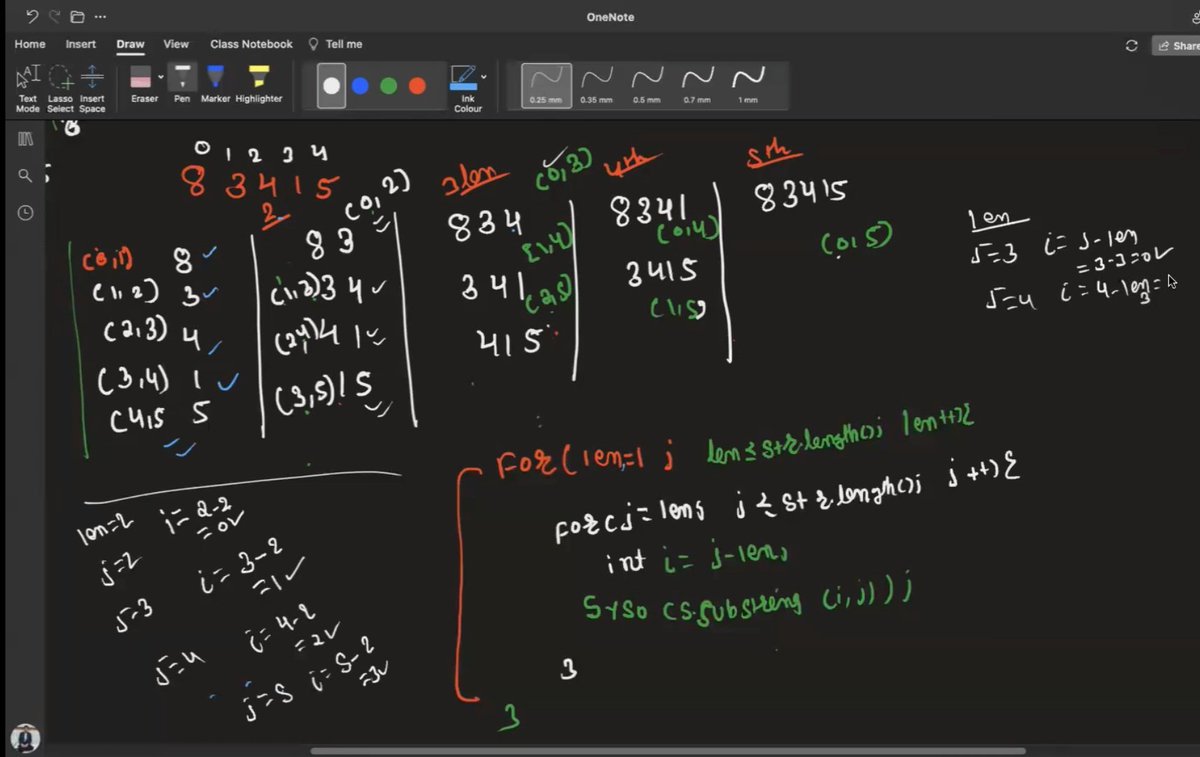 OneNote
Home Insert Draw View Class Notebook Tell me
Share
Text Mode Lasso Select Insert Space Eraser Pen Marker Highlighter Ink Colour
0.25 mm 0.35 mm 0.5 mm 0.7 mm 1 mm
0 1 2 3 4
8 3 4 1 5
2
(0,1) 8
(1,2) 3
(2,3) 4
(3,4) 1
(4,5 5
(0,2)
8 3
(1,3) 3 4
(2,4) 4 1
(3,5) 1 5
3len (0,3)
834
(1,4)
341
(2,5)
415
4th
8341
(0,4)
3415
(1,5)
5th
83415
(0,5)
len
j=3 i= j-len
= 3-3=0
j=4 i= 4-len=
3
For(len=1; len≤str.length(); len++){
For(j=len; j≤str.length(); j++){
int i= j-len;
Syso (s.substring (i,j));
}
}
len=2 i= 2-2
=0
j=2
i= 3-2
=1
j=3
i= 4-2
=2
j=4
j=5 i= 5-2
=3